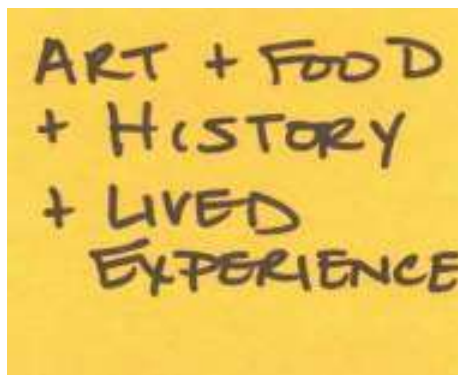 ART + FOOD
+ HISTORY
+ LIVED
EXPERIENCE